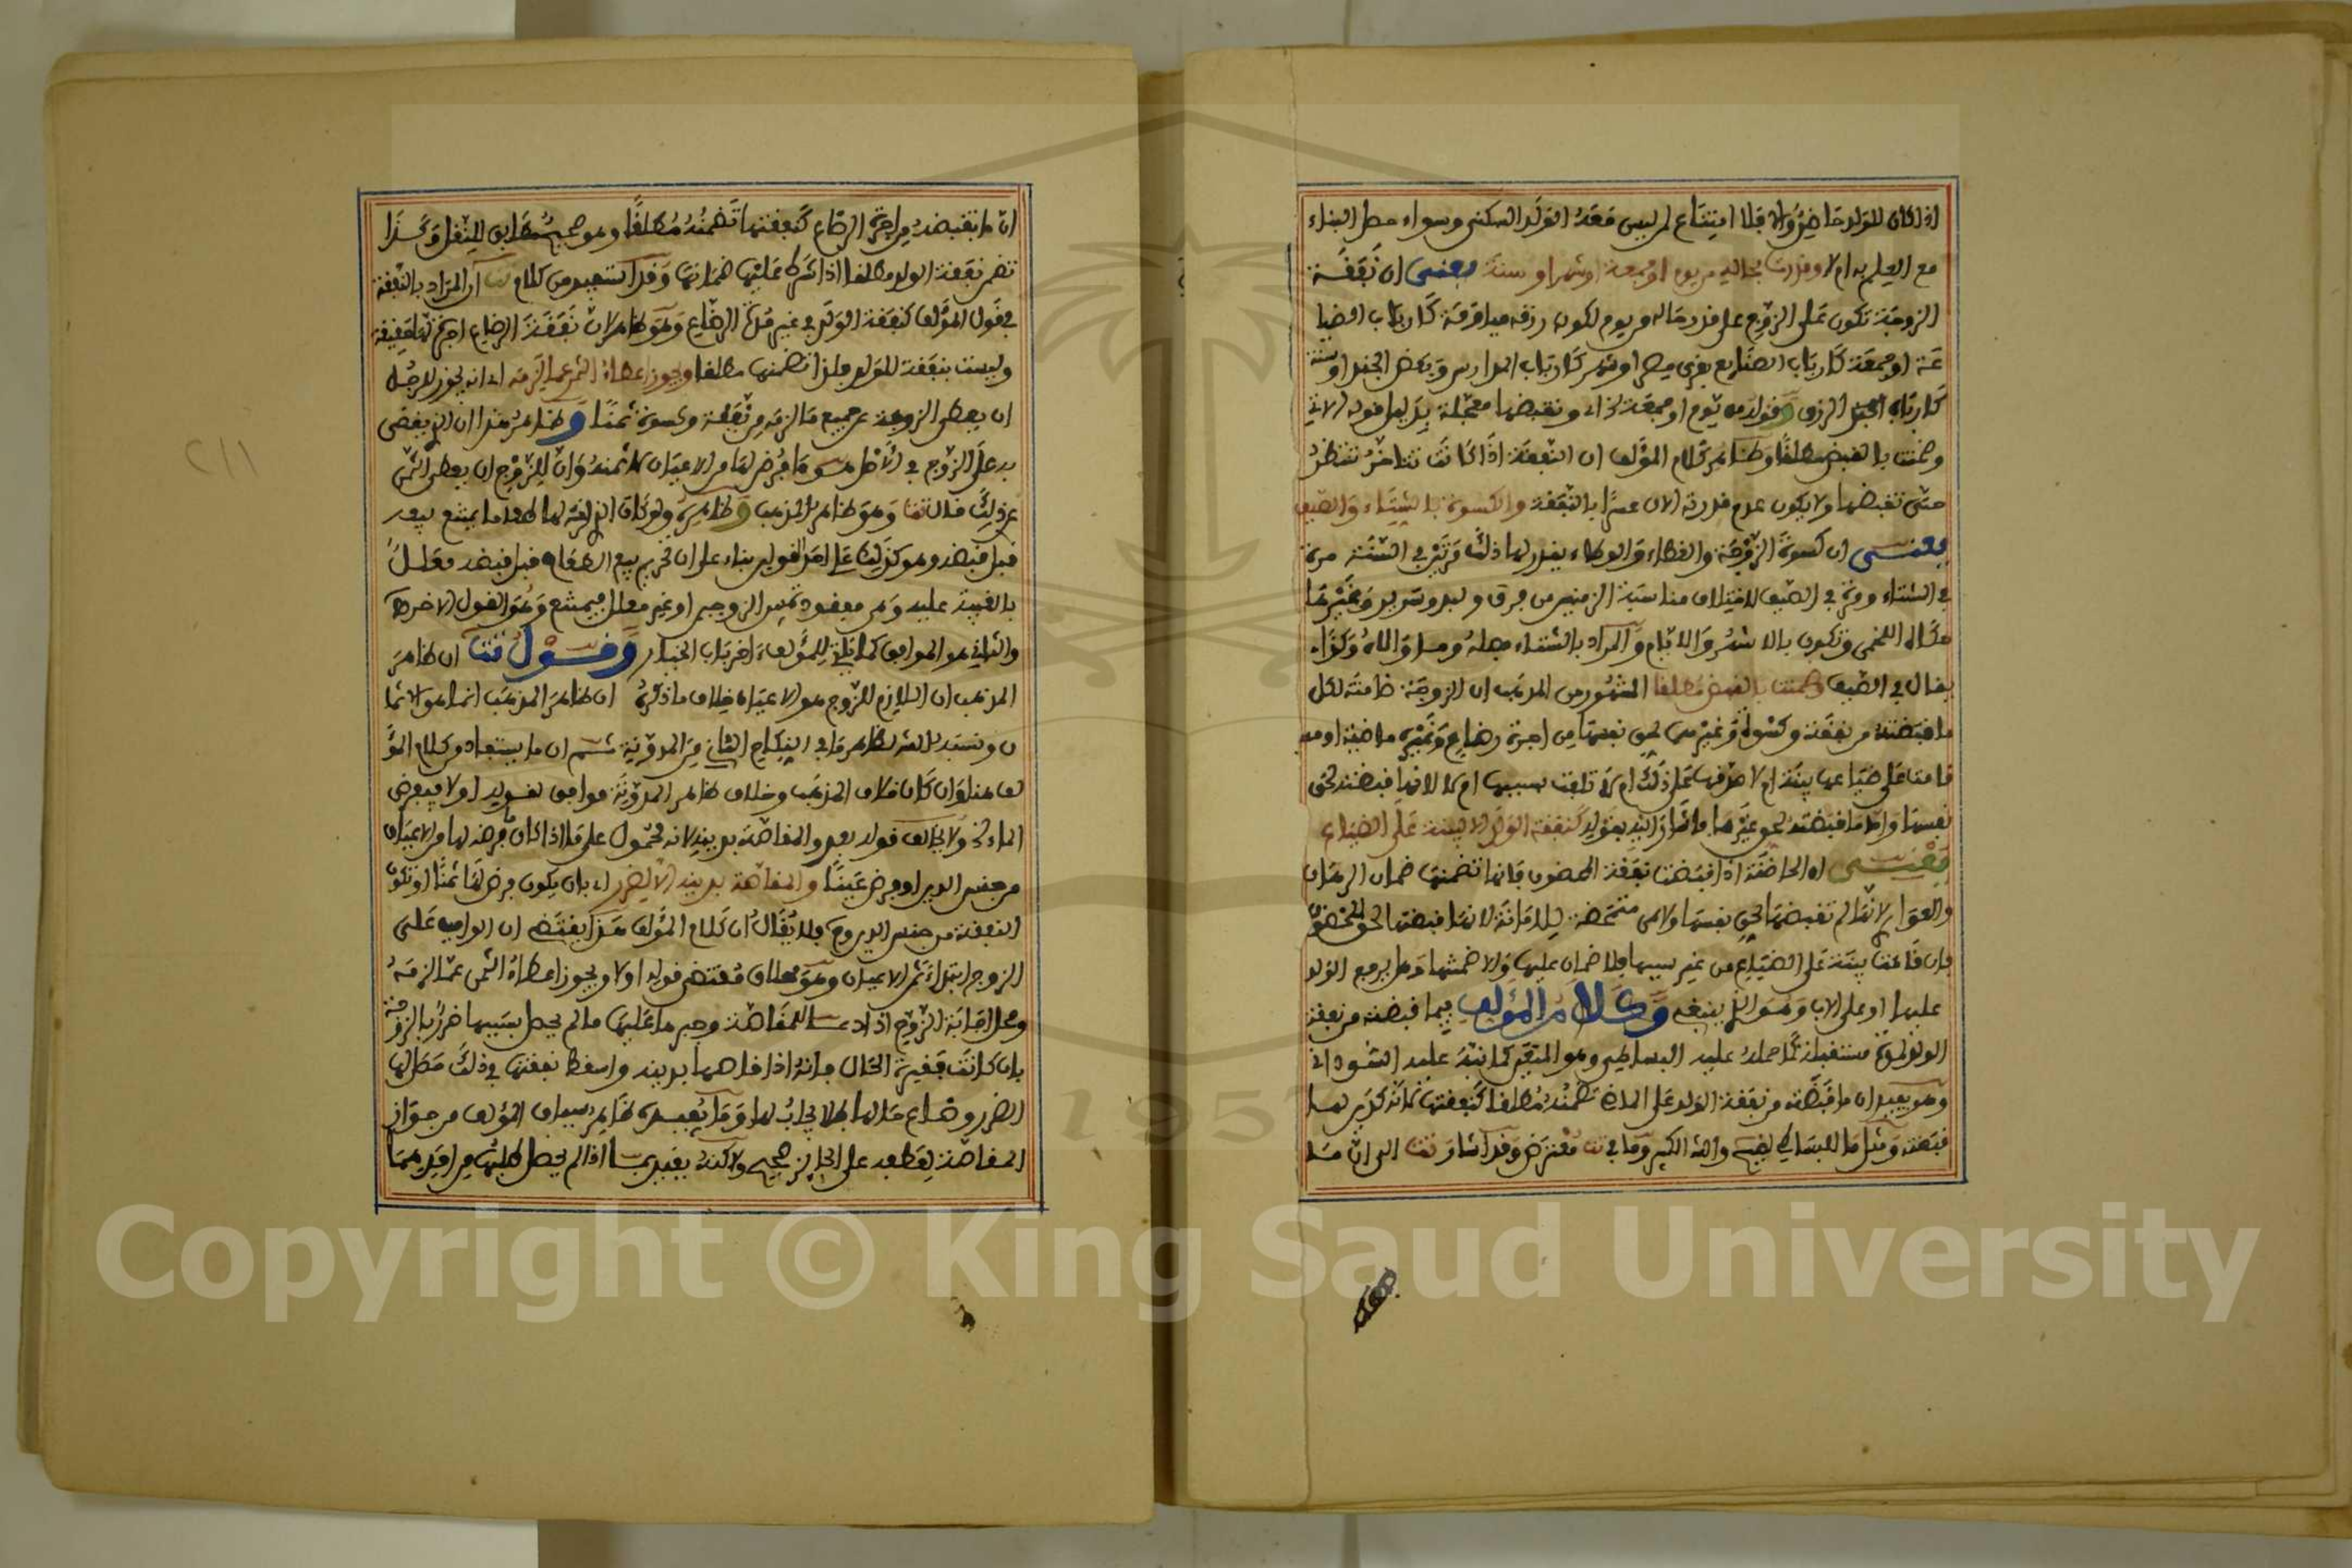 اذا كان للولد حاضن والا فلا امتناع لمن ليس معه الولد السكنى وسواء حصل البناء
مع العلم به ام لا وقدرت بحاله من يوم او جمعة او شهر او سنة يعني ان نفقة
الزوجة تكون على الزوج على قدر حاله من يوم لكون رزقه مياومة كارباب الصنا
ئع او جمعة كارباب الصنايع بقرى مصر او شهر كارباب المدارس وبعض الجند او سنة
كارباب الرزق وقوله من يوم او جمعة وتقبضها معجلة بدليل قوله الاتي
وضمنت بالقبض مطلقا وظاهر كلام المؤلف ان النفقة اذا كانت تتاخر تنتظر
حتى تقبضها ولا يكون عدم قدرته الان عسرا بالنفقة والكسوة بالشتاء والصيف
يعني ان كسوة الزوجة والغطاء والوطاء يقدر لها ذلك مرتين في السنة مرة
في الشتاء ومرة في الصيف لاختلاف مناسبة الزمنين من فرو ولبد وسرير وغيرها
قال اللخمي وتكون بالاشهر والايام والمراد بالشتاء فصله وما والاه وكذا
يقال في الصيف وضمنت بالقبض مطلقا المشهور من المذهب ان الزوجة ضامنة لكل
ما قبضته من نفقة وكسوة وغيرهما لحق نفسها من اجرة رضاع وغيره ماضية او مستقبلة
قامت على ضياعها بينة ام لا صدقها على ذلك ام لا تلفت بسببها ام لا لانها قبضته لحق
نفسها واما ما قبضته لحق غيرها فاشار اليه بقوله كنفقة الولد الا لبينة على الضياع
يعني ان الحاضنة اذا قبضت نفقة المحضون فانها تضمنها ضمان الرهان
والعواري لانها لم تقبضها لحق نفسها ولا هي متمحضة للامانة لانها قبضتها لحق المحضون
فان قامت بينة على الضياع من غير سببها فلا ضمان عليها والا ضمنتها وهل يرجع الولد
عليها او على الاب وهو الذي ينبغي وكلام المؤلف فيما قبضته من نفقة
الولد لمدة مستقبلة كما حمله عليه البساطي وهو المتعين كما نبه عليه السنهوري
وهو يفيد ان ما قبضته من نفقة الولد على الماضي تضمنه مطلقا كنفقتها لانه كدين لها
قبضته ومثل ما للبساطي لفيشي والشيخ الكبير وما في تت معترض وقد اشار تت الى ان ما
ان ما تقبضه من اجرة الرضاع كنفقتها تضمنه مطلقا وهو صحيح مطابق للنقل وكذا
تضمن نفقة الولد مطلقا اذا شرط عليها ضمانها وقد استفيد من كلام تت ان المراد بالنفقة
في قول المؤلف كنفقة الولد في غير مدة الرضاع وهو ظاهر لان نفقة الرضاع اجرتها حقيقة
وليست بنفقة للولد فلذا تضمنها مطلقا ويجوز اعطاء الثمن عما لزمه اي انه يجوز للرجل
ان يعطي الزوجة عن جميع ما لزمه من نفقة وكسوة ثمنا وظاهر هذا ان الذي يقضى
به على الزوج في الاصل هو ما فرض لها من الاعيان لا ثمنه وان للزوج ان يعطي الثمن
عن ذلك قال تت وهو ظاهر المذهب وظاهره ولو كان الذي لها طعاما يمتنع بيعه
قبل قبضه وهو كذلك على احد القولين بناء على ان تحريم بيع الطعام قبل قبضه معلل
بالغيبة عليه وهي مفقودة بين الزوجين او غير معلل فيمتنع وهو القول الاخر
والثاني هو الموافق لما ياتي للمؤلف اخر باب الخيار وقول تت ان ظاهر
المذهب ان اللازم للزوج هو الاعيان خلاف ما ذكره ان ظاهر المذهب انما هو الاثما
ن ونسبه للشيخ لظاهر ما في النكاح الثاني من المدونة ثم ان ما يستفاد من كلام المؤ
لف هنا وان كان خلاف المذهب وخلاف ظاهر المدونة موافق لقوله اولا فيفرض
الماء الخ ولا يخالف قوله بعد والمقاصة بدينه لانه محمول على ما اذا كان ما فرضه لها من الاعيان
من جنس الدين او فرض عينا والمقاصة بدينه الا لضرر اي بان يكون فرض لها ثمنا او تكون
النفقة من جنس الدين فلا يقال ان كلام المؤلف هذا يقتضي ان الواجب على
الزوج ابتداء ثمن الاعيان وهو خلاف مقتضى قوله اولا ويجوز اعطاء الثمن عما لزمه
ومحل اجابة الزوج اذا دعا للمقاصة وجبر ما عليها ما لم يحصل بسببها ضرر بالزوجة
بان كانت فقيرة الحال فانه اذا قاصها بدينه واسقط نفقتها في ذلك حصل لها
الضرر وضاع حالها فلا يجاب لها وما يفيده ظاهر سياق المؤلف من جواز
المقاصة لعطفه على الجائز صحيح ولكنه يقيد بما اذا لم يحصل طلبها من احدهما
٢١١
Copyright © King Saud University
1957